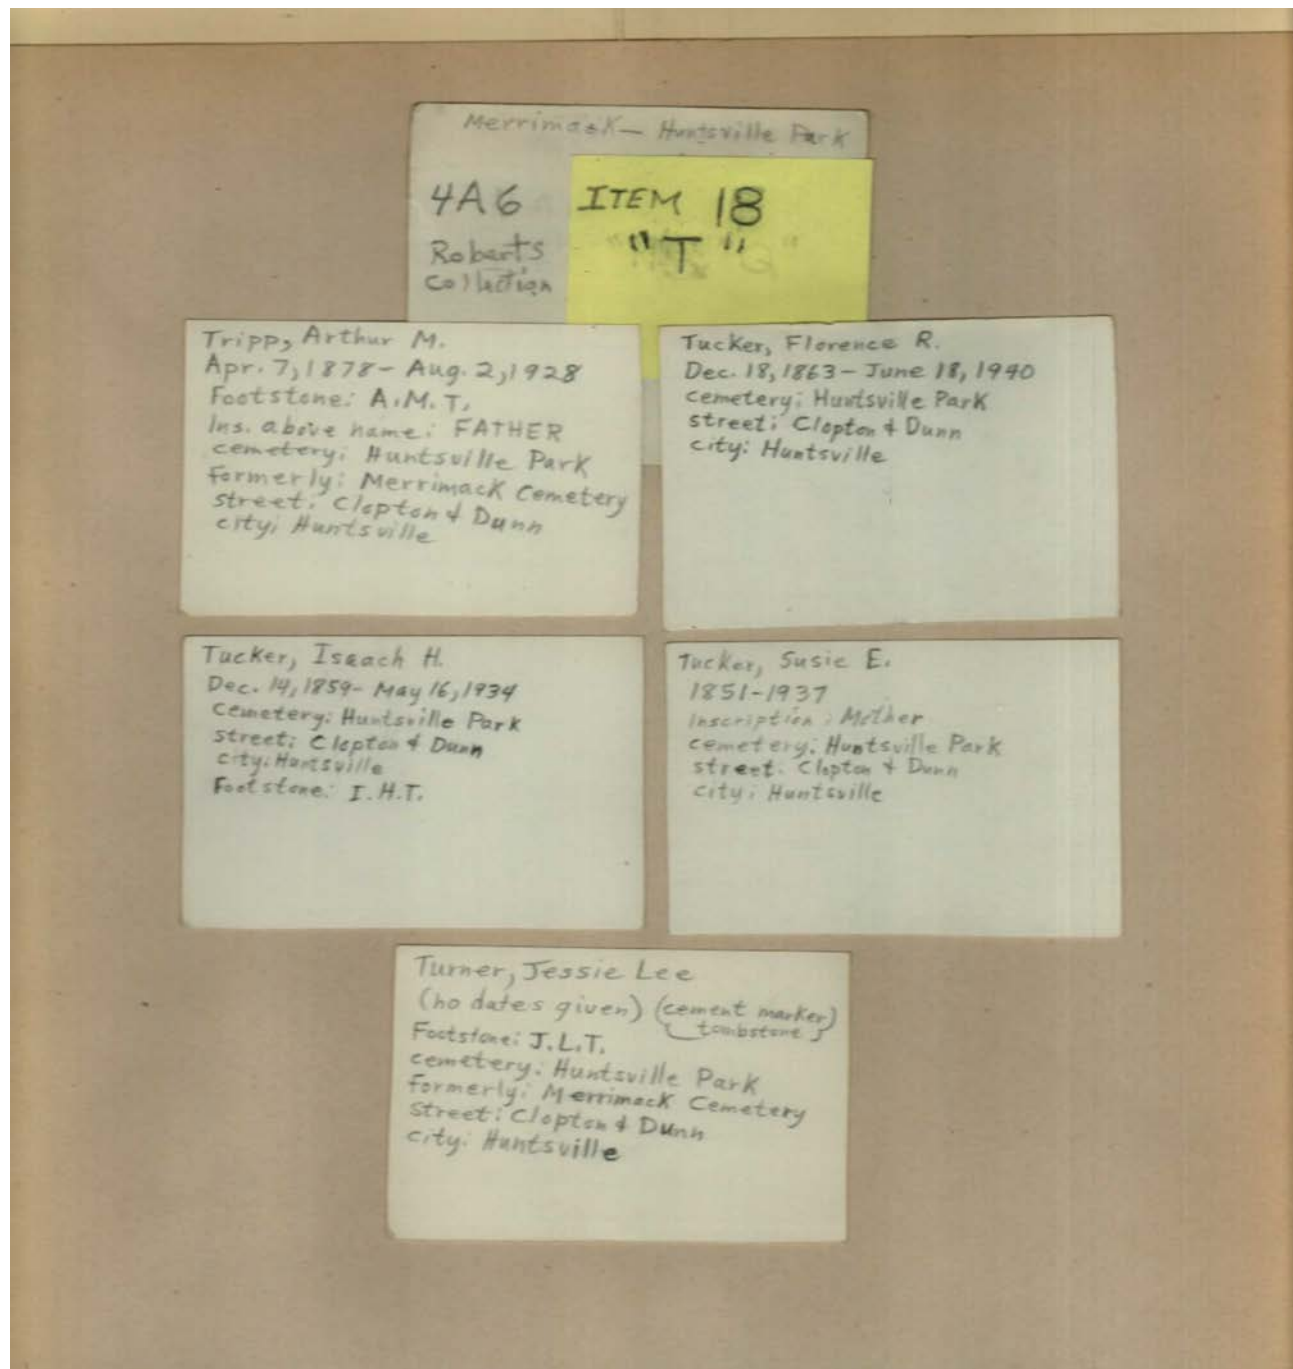 Merrimack — Huntsville Park
4A6
Roberts
Collection
ITEM 18
"T"
Tripp, Arthur M.
Apr. 7, 1878 - Aug. 2, 1928
Footstone: A.M.T.
Ins. above name: FATHER
cemetery: Huntsville Park
formerly: Merrimack Cemetery
street: Clopton & Dunn
city: Huntsville
Tucker, Florence R.
Dec. 18, 1863 - June 18, 1940
cemetery: Huntsville Park
street: Clopton & Dunn
city: Huntsville
Tucker, Isaach H.
Dec. 14, 1859 - May 16, 1934
cemetery: Huntsville Park
street: Clopton & Dunn
city: Huntsville
Footstone: I.H.T.
Tucker, Susie E.
1851-1937
inscription: Mother
cemetery: Huntsville Park
street: Clopton & Dunn
city: Huntsville
Turner, Jessie Lee
(no dates given) (cement marker)
tombstone
Footstone: J.L.T.
cemetery: Huntsville Park
formerly: Merrimack Cemetery
street: Clopton & Dunn
city: Huntsville